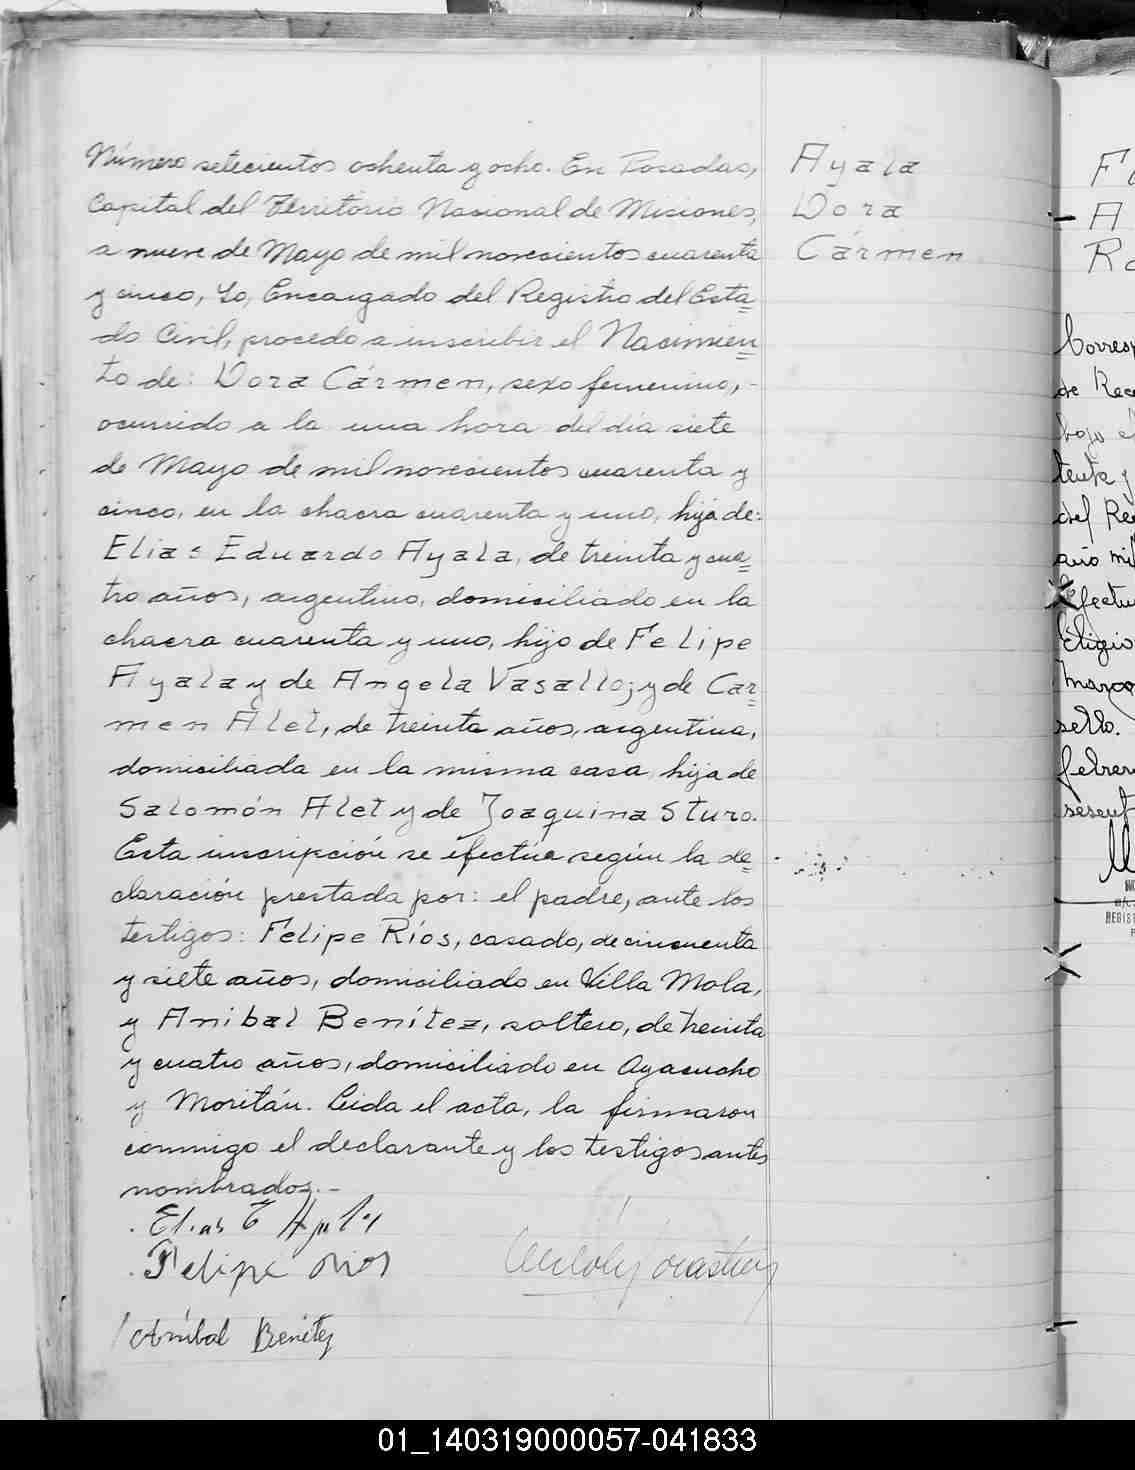 Número setecientos ochenta y ocho. En Posadas,
Capital del Territorio Nacional de Misiones,
a nueve de Mayo de mil novecientos cuarenta
y cinco, Yo, Encargado del Registro del Esta=
do Civil, procedo a inscribir el Nacimien=
to de: Dora Cármen, sexo femenino, -
ocurrido a la una hora del día siete
de Mayo de mil novecientos cuarenta y
cinco, en la chacra cuarenta y uno, hija de:
Elias Eduardo Ayala, de treinta y cua=
tro años, argentino, domiciliado en la
chacra cuarenta y uno, hijo de Felipe
Ayala y de Angela Vasallo; y de Car=
men Alet, de treinta años, argentina,
domiciliada en la misma casa, hija de
Salomón Alet y de Joaquina Sturo.
Esta inscripción se efectúa según la de=
claración prestada por: el padre, ante los
testigos: Felipe Ríos, casado, de cincuenta
y siete años, domiciliado en Villa Mola,
y Anibal Benítez, soltero, de treinta
y cuatro años, domiciliado en Ayacucho
y Moritán. Leida el acta, la firmaron
conmigo el declarante y los testigos antes
nombrados.-
Elias E Ayala
Felipe Rios
Anibal Benitez
Ayala
Dora
Cármen
A
Corresp
de Rec
bajo el
tenta y
del Re
año mil
Efectu
Eligio
Marco
sello.
febrer
sesent
01_140319000057-041833